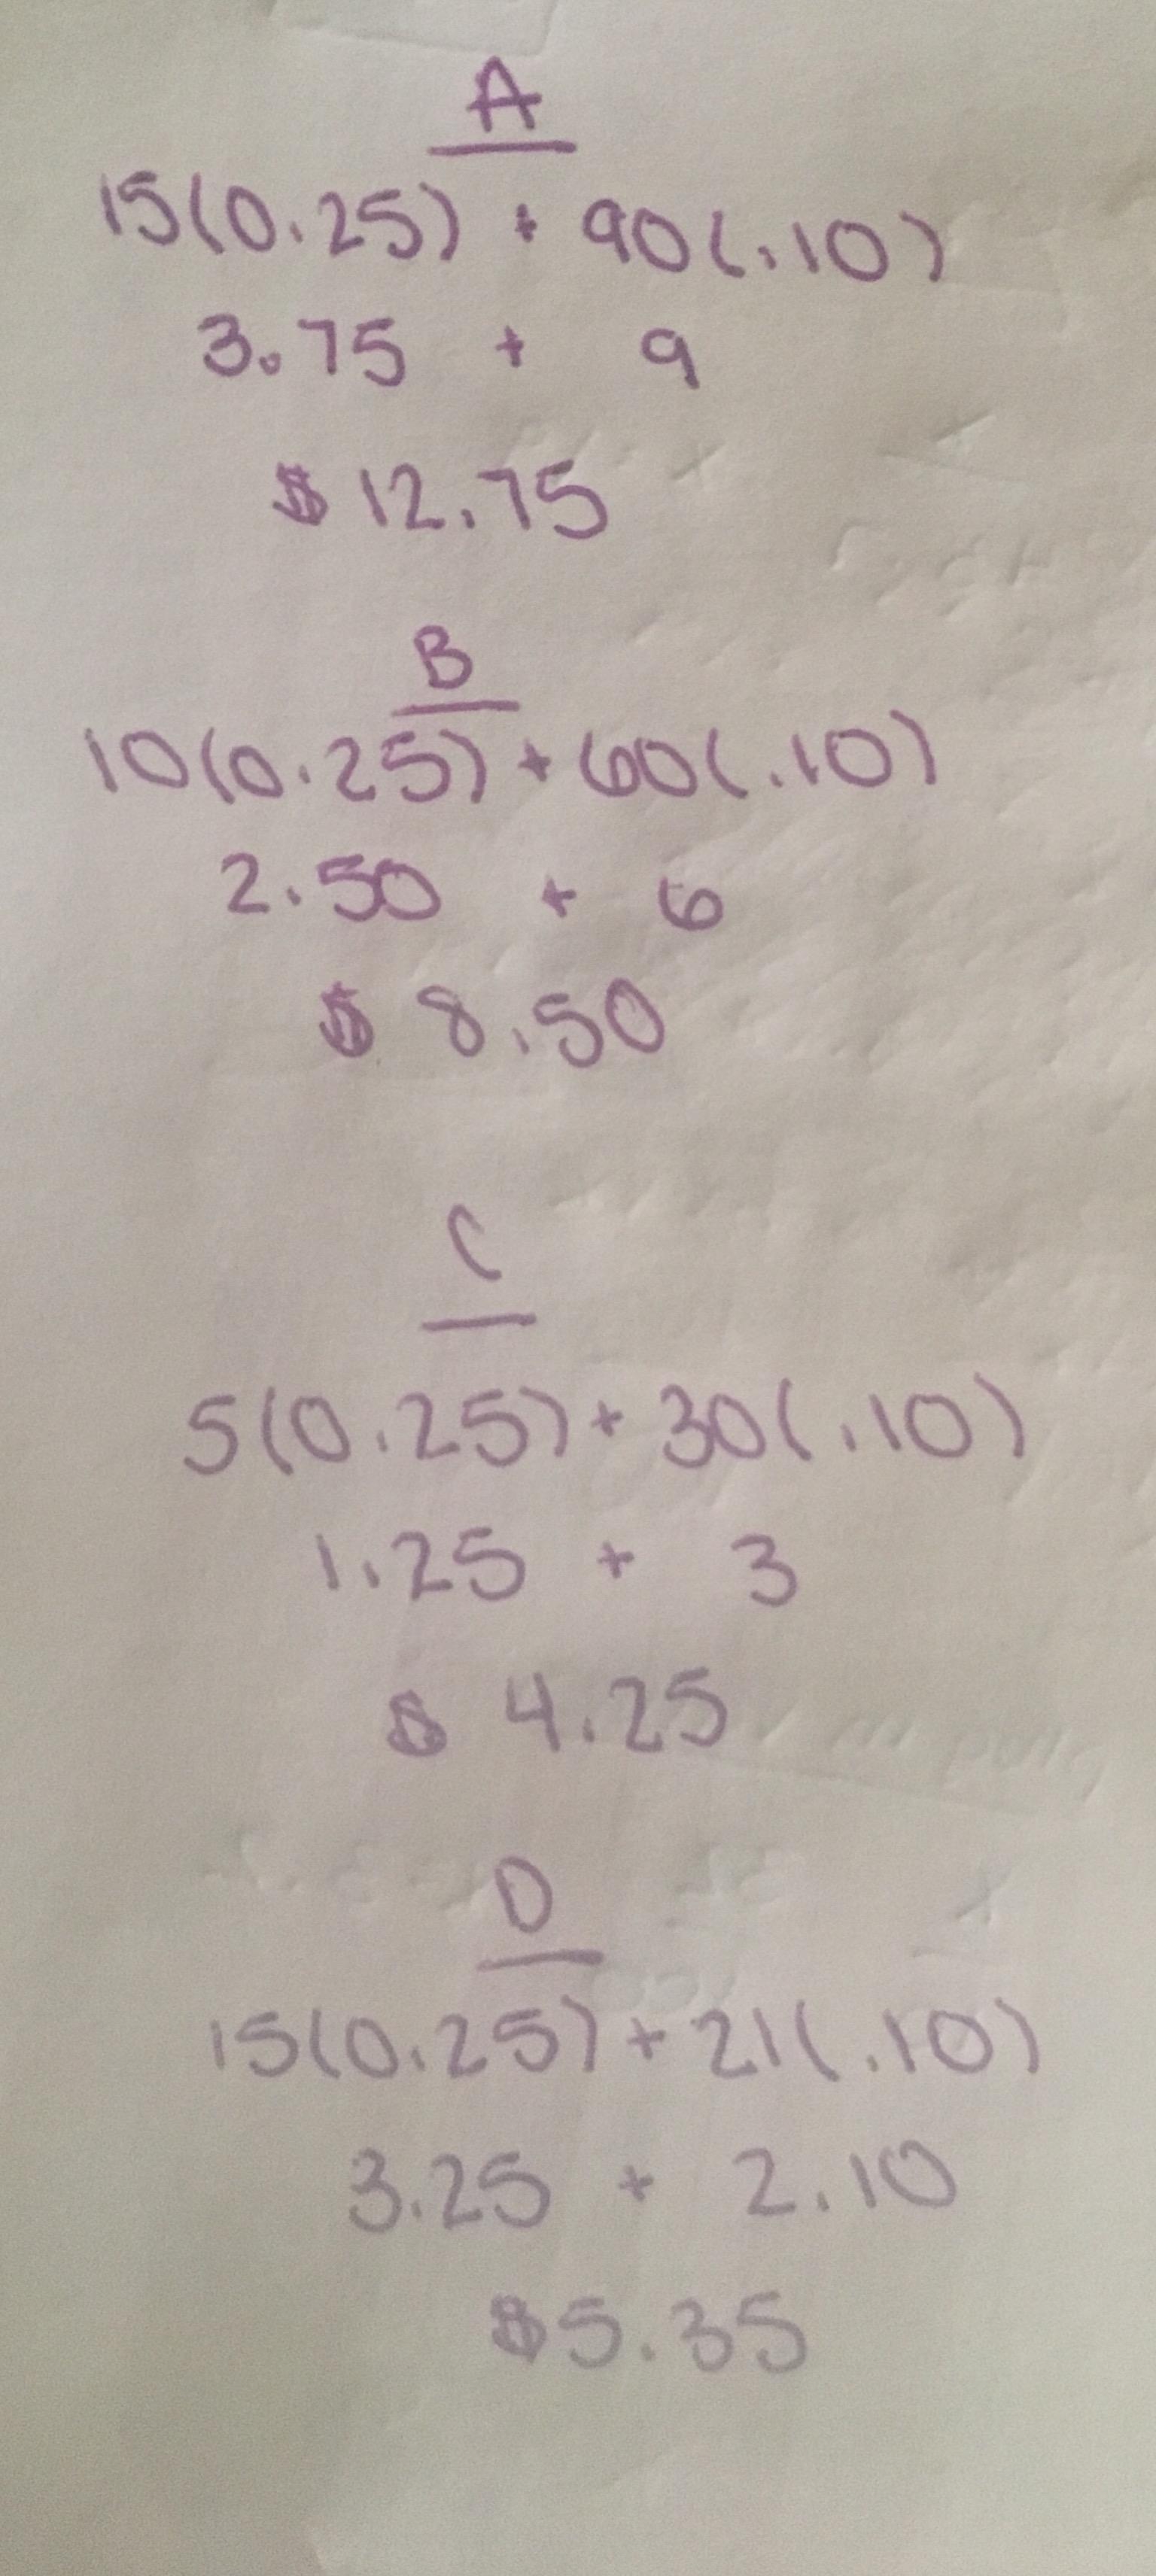 A
15(0.25) + 90(.10)
3.75 + 9
$ 12.75
B
10(0.25) + 60(.10)
2.50 + 6
$ 8.50
C
5(0.25) + 30(.10)
1.25 + 3
$ 4.25
D
15(0.25) + 21(.10)
3.25 + 2.10
$5.35